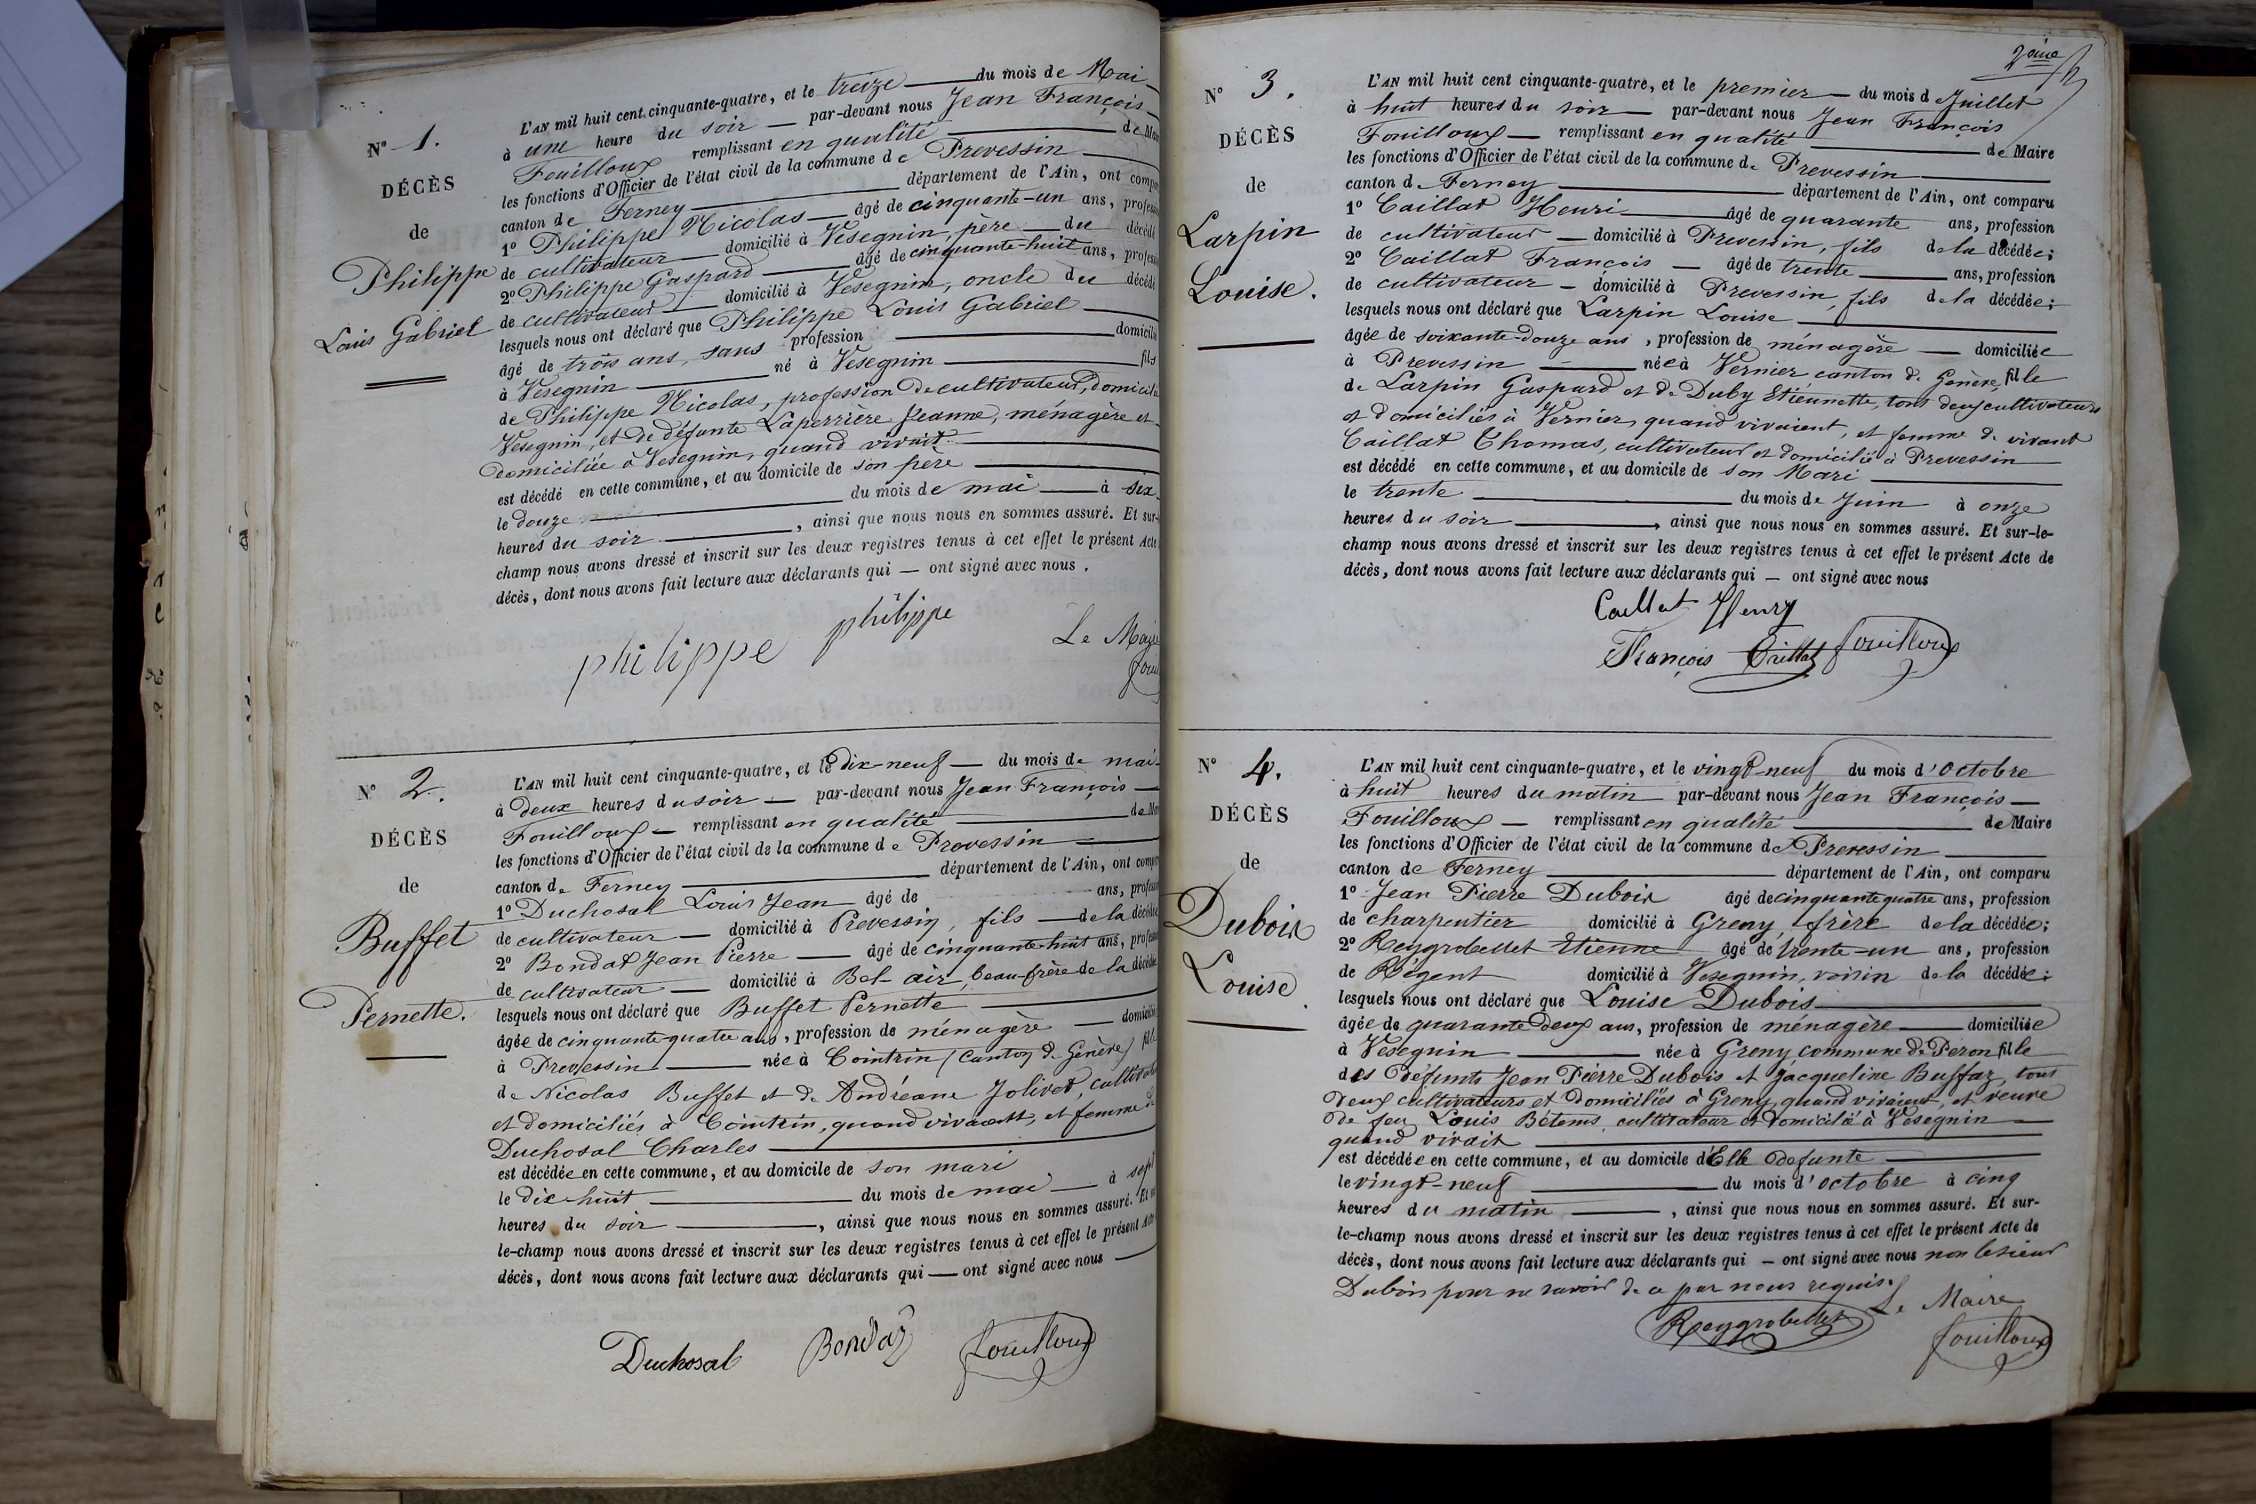 N° 1.
DÉCÈS
de
Philippe
Louis Gabriel
L'AN mil huit cent cinquante-quatre, et le treize du mois de Mai
à une heure du soir par-devant nous Jean François
Fouilloux remplissant en qualité de Mair
les fonctions d'Officier de l'état civil de la commune de Prevessin
canton de Ferney département de l'Ain, ont compar
1° Philippe Nicolas âgé de cinquante-un ans, profess
de cultivateur domicilié à Vesegnin, père du décédé
2° Philippe Gaspard âgé de cinquante-huit ans, profess
de cultivateur domicilié à Vesegnin, oncle du décédé
lesquels nous ont déclaré que Philippe Louis Gabriel
âgé de trois ans, sans profession domicilié
à Vesegnin né à Vesegnin fils
de Philippe Nicolas, profession de cultivateur, domicilié
Vesegnin, et de défunte Laperriere Jeanne, ménagère et
domiciliée à Vesegnin, quand vivait
est décédé en cette commune, et au domicile de son père
le douze du mois de mai à six
heures du soir, ainsi que nous nous en sommes assuré. Et sur-
champ nous avons dressé et inscrit sur les deux registres tenus à cet effet le présent Acte
décès, dont nous avons fait lecture aux déclarants qui — ont signé avec nous.
philippe philippe Le Maire
N° 2.
DÉCÈS
de
Buffet
Pernette.
L'AN mil huit cent cinquante-quatre, et le dix-neuf du mois de mai
à deux heures du soir par-devant nous Jean François
Fouilloux remplissant en qualité de Mai
les fonctions d'Officier de l'état civil de la commune de Prevessin
canton de Ferney département de l'Ain, ont compar
1° Duchosal Louis Jean âgé de ans, profess
de cultivateur domicilié à Prevessin, fils de la décédée
2° Bondat Jean Pierre âgé de cinquante-huit ans, profess
de cultivateur domicilié à Bel-air, beau-frère de la décédée
lesquels nous ont déclaré que Buffet Pernette
âgée de cinquante-quatre ans, profession de ménagère domicilié
à Prevessin née à Cointrin (Canton de Genève) fille
de Nicolas Buffet et de Andréane Jolivet, cultivate
et domiciliés à Cointrin, quand vivaient, et femme de
Duchosal Charles
est décédée en cette commune, et au domicile de son mari
le dix-huit du mois de mai à sept
heures du soir, ainsi que nous nous en sommes assuré. Et sur
le-champ nous avons dressé et inscrit sur les deux registres tenus à cet effet le présent Acte
décès, dont nous avons fait lecture aux déclarants qui — ont signé avec nous
Duchosal Bondaz fouilloux
2ème
N° 3.
DÉCÈS
de
Larpin
Louise.
L'AN mil huit cent cinquante-quatre, et le premier du mois de Juillet
à huit heures du soir par-devant nous Jean François
Fouilloux remplissant en qualité de Maire
les fonctions d'Officier de l'état civil de la commune de Prevessin
canton de Ferney département de l'Ain, ont comparu
1° Caillat Henri âgé de quarante ans, profession
de cultivateur domicilié à Prevessin, fils de la décédée;
2° Caillat François âgé de trente ans, profession
de cultivateur domicilié à Prevessin, fils de la décédée;
lesquels nous ont déclaré que Larpin Louise
âgée de soixante-douze ans, profession de ménagère domiciliée
à Prevessin née à Vernier canton de Genève fille
de Larpin Gaspard et de Duby Etiennette, tous deux cultivateurs
et domiciliés à Vernier, quand vivaient, et femme de vivant
Caillat Thomas, cultivateur et domicilié à Prevessin
est décédé en cette commune, et au domicile de son Mari
le trente du mois de Juin à onze
heures du soir, ainsi que nous nous en sommes assuré. Et sur-le-
champ nous avons dressé et inscrit sur les deux registres tenus à cet effet le présent Acte de
décès, dont nous avons fait lecture aux déclarants qui — ont signé avec nous
Caillat Henry
François Caillat fouilloux
N° 4.
DÉCÈS
de
Dubois
Louise
L'AN mil huit cent cinquante-quatre, et le vingt-neuf du mois d'Octobre
à huit heures du matin par-devant nous Jean François
Fouilloux remplissant en qualité de Maire
les fonctions d'Officier de l'état civil de la commune de Prevessin
canton de Ferney département de l'Ain, ont comparu
1° Jean Pierre Dubois âgé de cinquante quatre ans, profession
de charpentier domicilié à Greny, frère de la décédée;
2° Reygrobellet Etienne âgé de trente-un ans, profession
de Régent domicilié à Vesegnin, voisin de la décédée;
lesquels nous ont déclaré que Louise Dubois
âgée de quarante deux ans, profession de ménagère domiciliée
à Vesegnin née à Greny, commune de Péron fille
des défunts Jean Pierre Dubois et Jacqueline Buffaz, tous
deux cultivateurs et domiciliés à Greny, quand vivaient, et veuve
de feu Louis Bétems, cultivateur et domicilié à Vesegnin
quand vivait
est décédée en cette commune, et au domicile d'Elle defunte
le vingt-neuf du mois d'octobre à cinq
heures du matin, ainsi que nous nous en sommes assuré. Et sur-
le-champ nous avons dressé et inscrit sur les deux registres tenus à cet effet le présent Acte de
décès, dont nous avons fait lecture aux déclarants qui — ont signé avec nous non le sieur
Dubois pour ne savoir de ce par nous requis.
Reygrobellet Le Maire
fouilloux